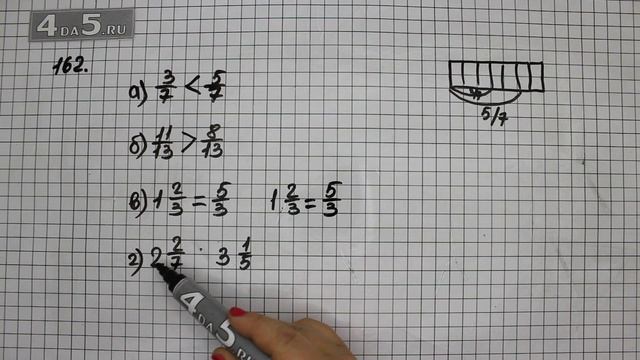 4DA5.RU
162.
а) 3/7 < 5/7
5/7
б) 11/13 > 8/13
в) 1 2/3 = 5/3 1 2/3 = 5/3
г) 2 2/7 3 1/5
4DA5.RU